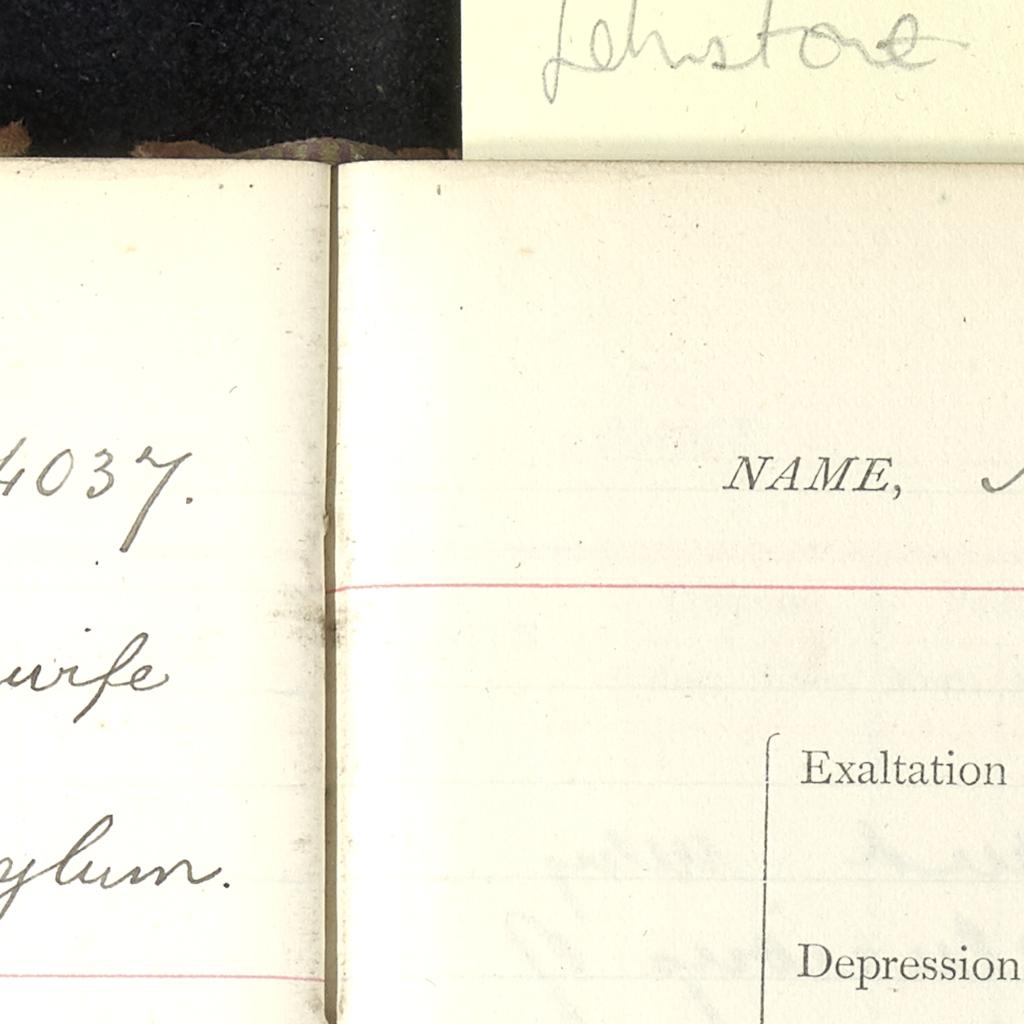 Johnstone
4037.
wife
ylum.
NAME,
Exaltation
Depression